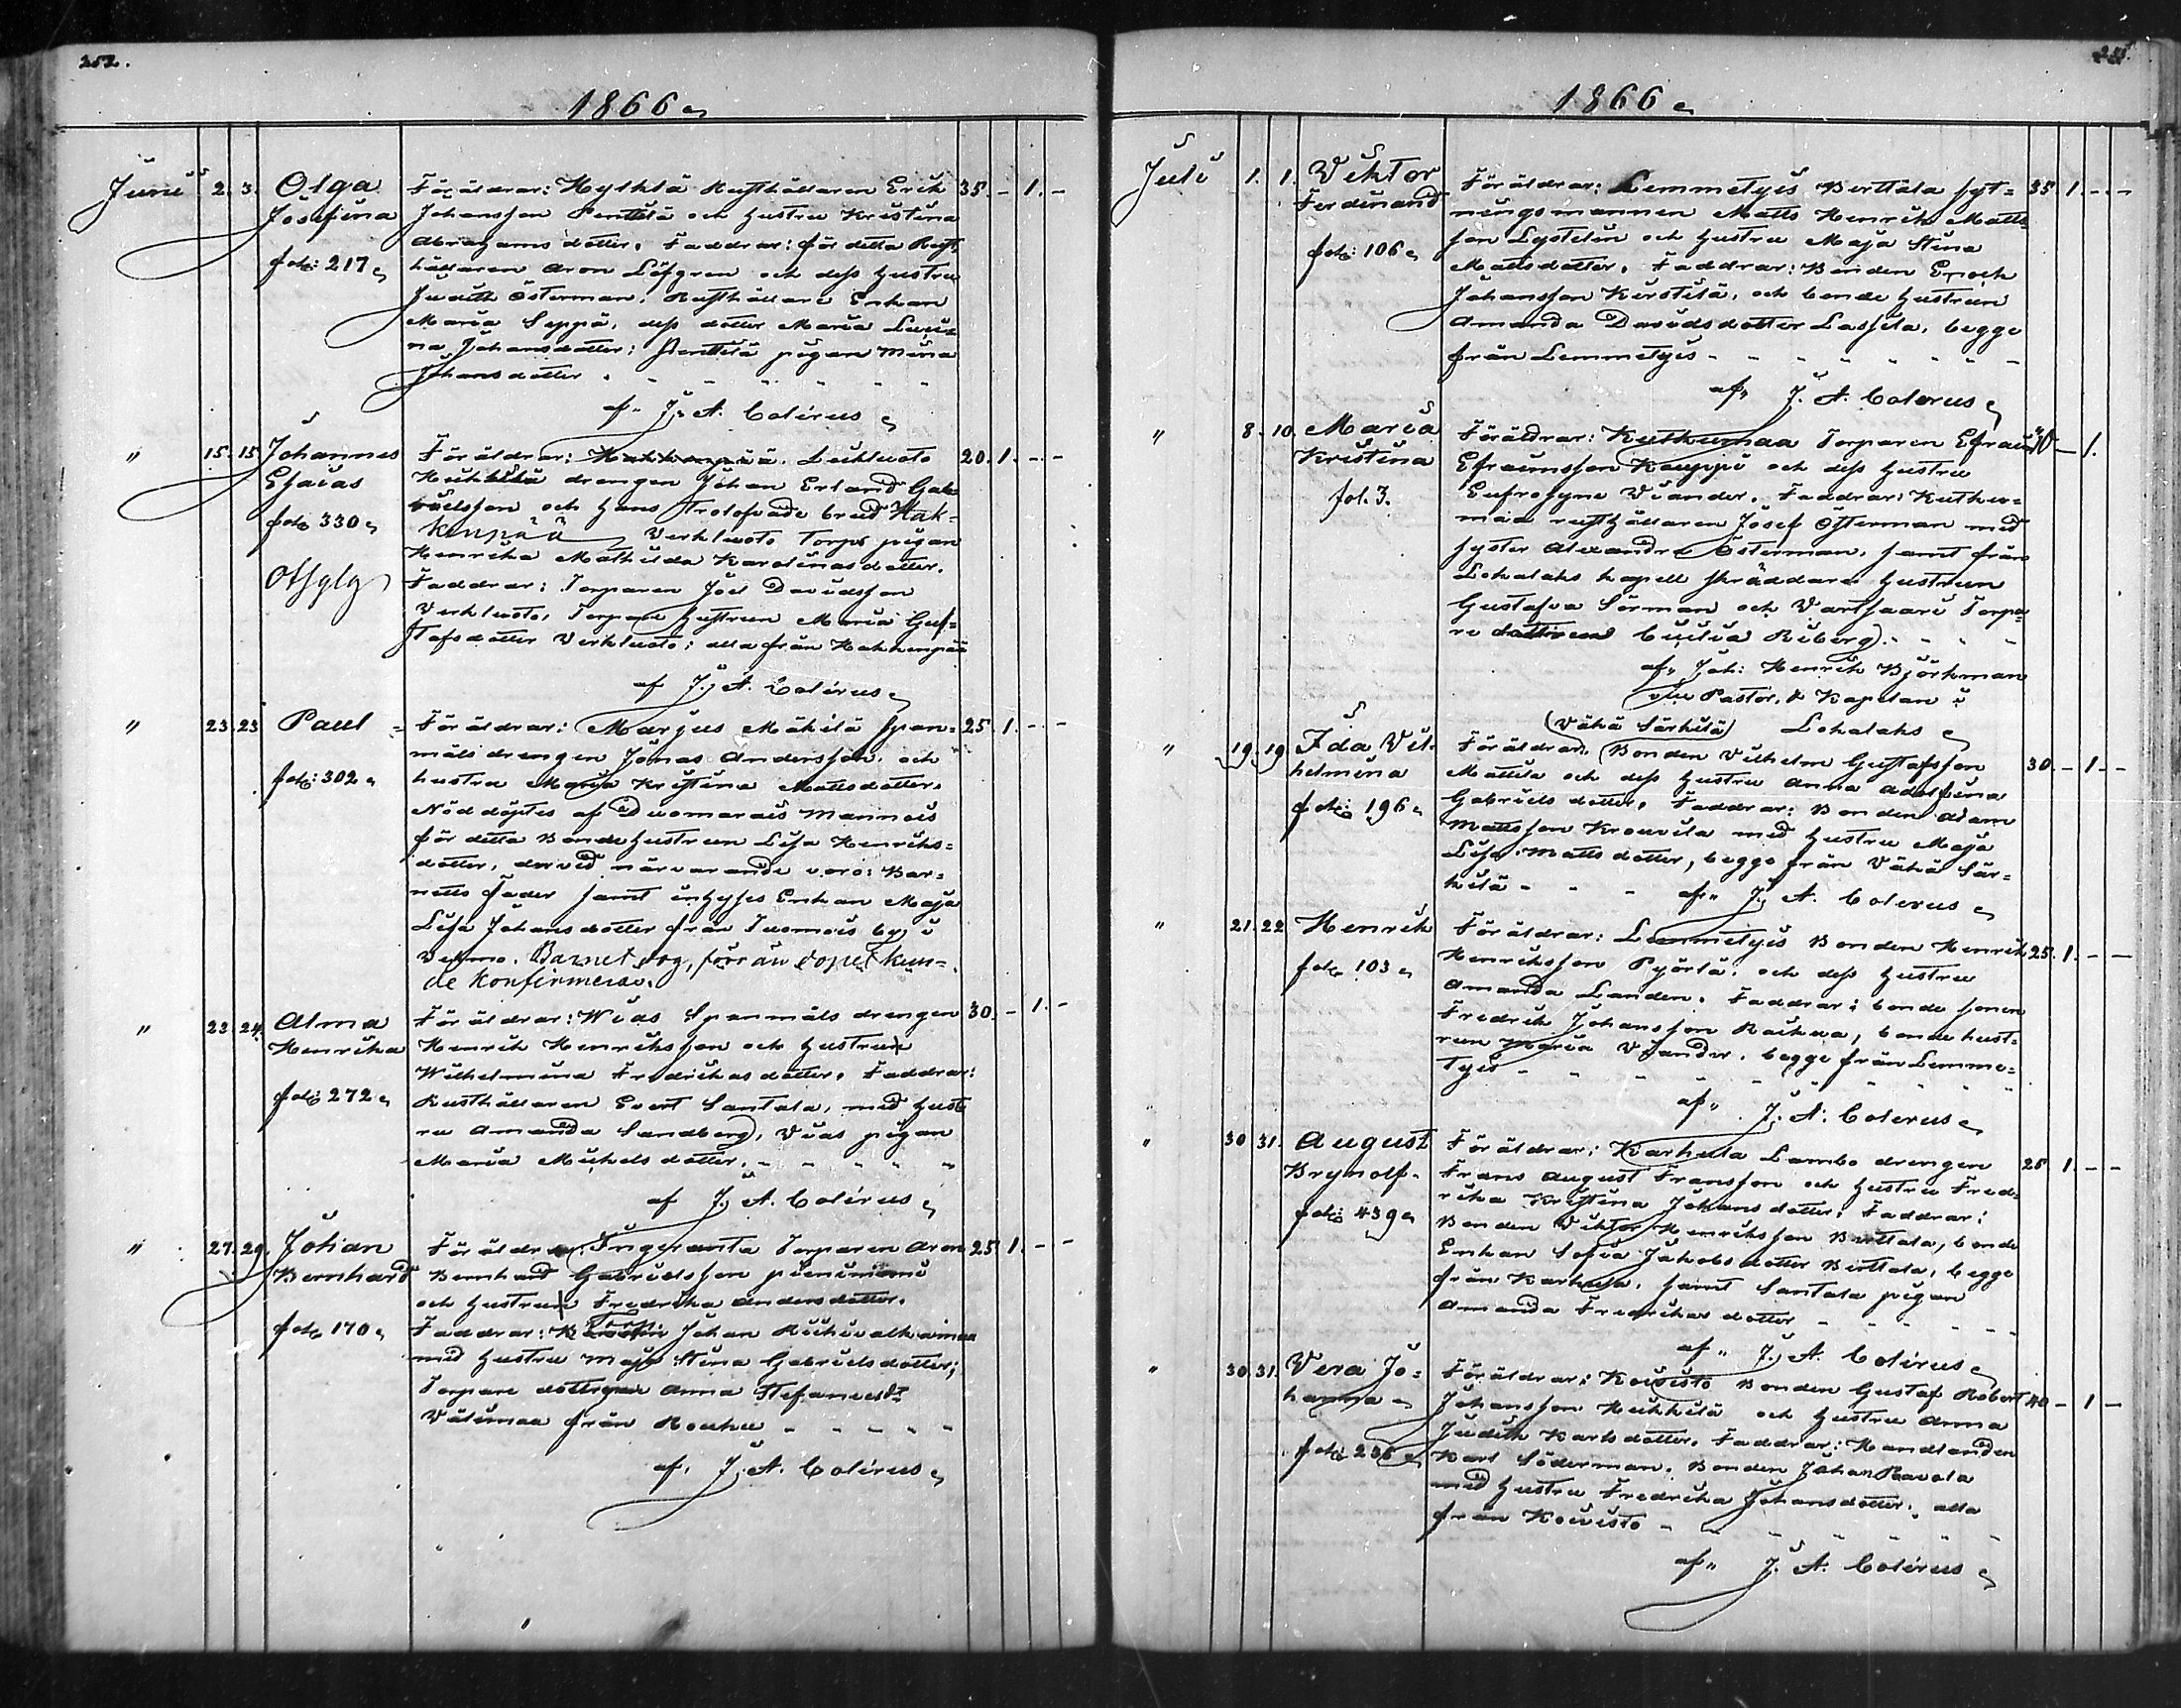 252.
1866
Junii 2. 3. Olga Josefina
fol: 217
Föräldrar: Hylkilä Rusthållaren Erik 35. - 1. -
Johansson Penttilä och hustru Kristina
Abrahams dotter. Faddrar: för detta Rust,
hållaren Aron Löfgren och dess hustru
Judith Österman. Rusthållare Enkan
Maria Seppä, dess dotter Maria Lovi=
na Johansdotter; Penttilä pigan Mina
Johansdotter.
af J. A. Colérus
" 15. 15. Johannes Esaias
fol. 330
Föräldrar: Leikluoto 20. 1. - -
Heikkilä drengen Johan Erland Gab
rielsson och hans trolofvade brud Hak=
kenpää Verkluoto Torps pigan
Henrika Mathilda Karolinasdotter.
Faddrar: Torparen Joel Davidsson
Verkluoto, Torpare hustrun Maria Gus=
tafsdotter Verkluoto; alla från Hakkenpää
af J. A. Colérus
" 23. 23. Paul
fol: 302
Föräldrar: Marjus Mäkilä span= 25. 1. - -
måls drengen Jonas Andersson och
hustru Maria Kristina Mattsdotter.
Nöddöptes af Duomarais Mannois
för detta Bonde hustrun Lisa Henriks=
dotter, dervid närvarande voro: Bar=
nets fader samt inhyses Enkan Maja
Lisa Johansdotter från Tuomois by i
Vehmo. Barnet dog, förrän dopet kun=
de konfirmeras.
" 23. 24. Alma Henrika
fol: 272
Föräldrar: Wias Spanmåls drengen 30. - 1. -
Henrik Henriksson och hustrun
Wilhelmina Fredrikas dotter. Faddrar:
Rusthållaren Evert Santala, med hust
ru Amanda Sandberg, Vias pigan
Maria Mickels dotter.
af J. A. Colérus
" 27. 29. Johan Bernhard
fol. 170
Föräldrar: Ingeranta Torparen Aron 25. 1. - -
Bernhard Gabrielsson pienimäni
och hustrun Fredrika Andersdotter.
Faddrar: Torp. Johan Riihivalkaimaa
med hustru Maja Stina Gabriels dotter;
Torpare dottren Anna Stefansdr
Välimaa från Rouhu
af. J. A. Colérus
1866
Juli 1. 1. Viktor Ferdinand
fol: 106
Föräldrar: Lemmetyis Berttala syt= 35 1. - -
ningsmannen Matts Henrik Matts
son Lystelin och hustru Maja Stina
Mattsdotter. Faddrar: Bonden Enoch
Johansson Kirstilä, och bonde hustrun
Amanda Davidsdotter Lassila, begge
från Lemmetyis
af J. A. Colerus
" 8. 10. Maria Kristina
fol. 3.
Föräldrar: Kuthumaa Torparen Efraim 40 - 1.
Efraimsson Kauppi och dess hustru
Eufrosyne Viander. Faddrar: Kuthu=
maa rusthållaren Josef Österman med
syster Alexandra Österman, samt från
Lokalaks kapell skräddare hustrun
Gustafva Sörman och Vartsaari Torpa=
re dottren Cecilia Riberg.
af Joh: Henrik Björkman
v Pastor, & Kapelan i
Lokalaks
" 19. 19. Ida Vil helmina
fol: 196
(Vähä Särkilä)
Föräldrar: Bonden Vilhelm Gustafsson 30. - 1. -
Mattila och dess hustru Anna Adolfina
Gabriels dotter. Faddrar: Bonden Adam
Mattsson Krouvila med hustru Maja
Lisa Matts dotter, begge från Vähä Sär=
kilä
af J. A. Colerus
" 21. 22 Henrik
fol. 103
Föräldrar: Lemmetyis Bonden Henrik 25. 1. - -
Henriksson Pyörlä, och dess hustru
Amanda Landen. Faddrar: bonde sonen
Fredrik Johansson Raikua, bonde hust=
run Maria Viander. begge från Lemme=
tyis
af J. A. Colerus
" 30 31. August Brynolf.
fol: 439
Föräldrar: Karhula Lambo drengen 25 1. - -
Frans August Fransson och hustru Fred=
rika Kristina Johans dotter. Faddrar:
Bonden Viktor Henriksson Berttala, bonde
Enkan Sofia Jakobs dotter Berttala, begge
från Karhula. samt Santala pigan
Amanda Fredrikas dotter
af J. A. Colérus
" 30. 31. Vera Jo= hanna
fol: 236
Föräldrar: Koivisto Bonden Gustaf Robert 40 - 1 -
Johansson Heikkilä och hustru Anna
Judith Karls dotter. Faddrar: Handlanden
Karl Söderman. Bonden Johan Paavola
med hustru Fredrika Johansdotter; alla
från Koivisto
af J. A. Colérus